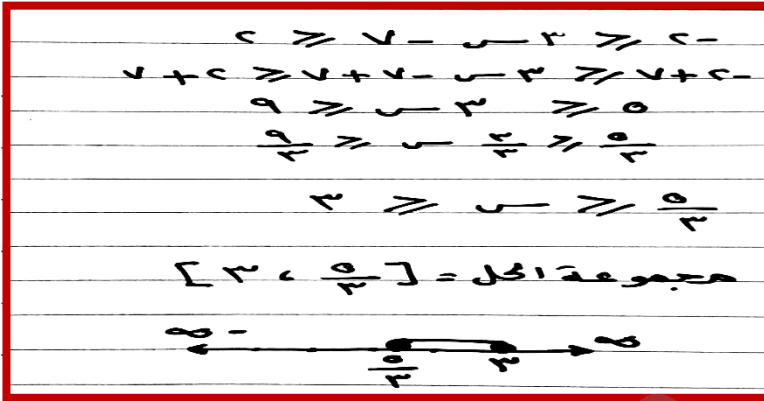 -٢ ≤ ٣س - ٧ ≤ ٢
-٢ + ٧ ≤ ٣س - ٧ + ٧ ≤ ٢ + ٧
٥ ≤ ٣س ≤ ٩
٥/٣ ≤ ٣/٣ س ≤ ٩/٣
٥/٣ ≤ س ≤ ٣
مجموعة الحل = [٥/٣ ، ٣]
∞ -∞
٣ ٥/٣